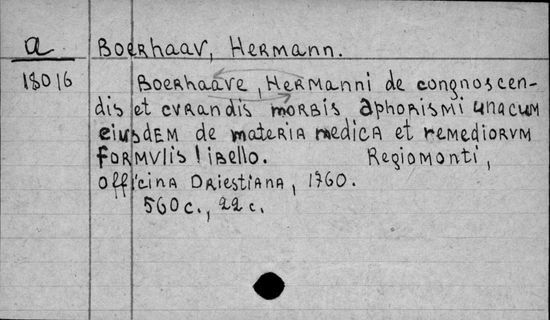 a Boerhaav, Hermann.
18016 Boerhaave, Hermanni de congnoscen-
dis et cvrandis morbis aphorismi unacum
eiusdem de materia medica et remediorvm
formvlis libello. Regiomonti,
officina Driestiana, 1760.
560 c., 22 c.